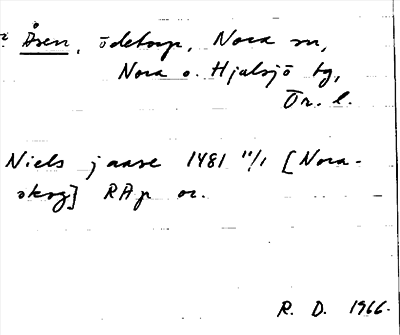 ? Åsen, ödetorp, Nora sn,
Nora o. Hjulsjö bg,
Ör. l.
Niels j aase 1481 11/1 [Nora-
skog] RAp or.
R. D. 1966.